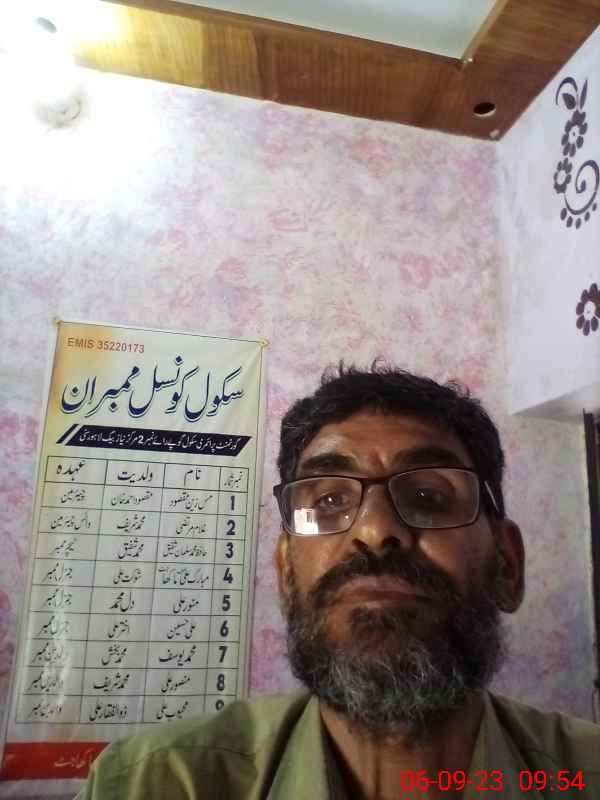 EMIS 35220173
سکول کونسل ممبران
گورنمنٹ پرائمری سکول گوپے رائے نمبر 2 مرکز نیاز بیگ لاہور سٹی
نمبر شمار نام ولدیت عہدہ
1 مس زرین مقصود مقصود احمد خان چیئرمین
2 غلام مرتضیٰ محمد شریف وائس چیئرمین
3 حافظ محمد سلمان شفیق محمد شفیق ٹیچر ممبر
4 مبارک علی شوکت علی جنرل ممبر
5 منور علی دل محمد جنرل ممبر
6 علی حسنین اختر علی جنرل ممبر
7 محمد یوسف محمد بخش والدین ممبر
8 منصور علی محمد شریف والدین ممبر
9 محبوب علی ذوالفقار علی والدین ممبر
06-09-23 09:54